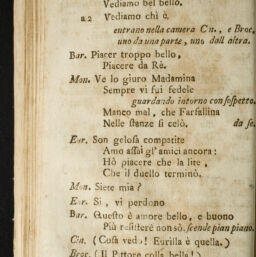 Vediamo bel bello.
a 2 Vediamo chi è.
entrano nella camera Cn., e Broc.
uno da una parte, uno dall altra.
Bar. Piacer troppo bello,
Piacere da Rè.
Mon. Ve lo giuro Madamina
Sempre vi fui fedele
guardando intorno con sospetto.
Manco mal, che Farfallina
Nelle stanze si celò. da se.
Eur. Son gelosa compatite
Amo assai gl' amici ancora:
Hò piacere che la lite,
Che il duello terminò.
Mon. Siete mia?
Eur. Sì, vi perdono
Bar. Questo è amore bello, e buono
Più resistere non sò. scende pian piano.
Cn. (Cosa vedo! Eurilla è quella.)
Broc. (Il Pittore colla bella!)